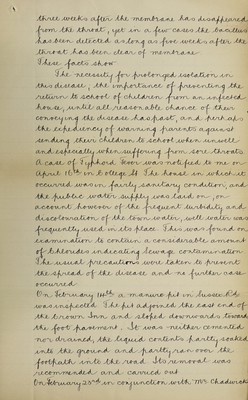 three weeks after the membrane has disappeared
from the throat, yet in a few cases the bacillus
has been detected as long as five weeks after the
throat has been clear of membrane
These facts show
The necessity for prolonged isolation in
this disease, the importance of preventing the
return to school of children from an infected
house, until all reasonable chance of their
conveying the disease has past, and perhaps
the expediency of warning parents against
sending their children to school when unwell
and especially when suffering from sore throats
A case of Typhoid Fever was notified to me on
April 16th in College St The house in which it
occurred was in fairly sanitary condition, and
the public water supply was laid on, on
account however of the frequent turbidity and
discolouration of the town water, well water was
frequently used in its place. This was found on
examination to contain a considerable amount
of Chlorides indicating sewage contamination
The usual precautions were taken to prevent
the spread of the disease and no further case
occurred
On February 14th a manure pit in Sussex Rd
was inspected The pit adjoined the east end of
the Crown Inn and sloped downwards toward
the foot pavement. It was neither cemented
nor drained, the liquid contents partly soaked
into the ground and partly ran over the
footpath into the road Its removal was
recommended and carried out
On February 23rd in conjunction with Mr Chadwick